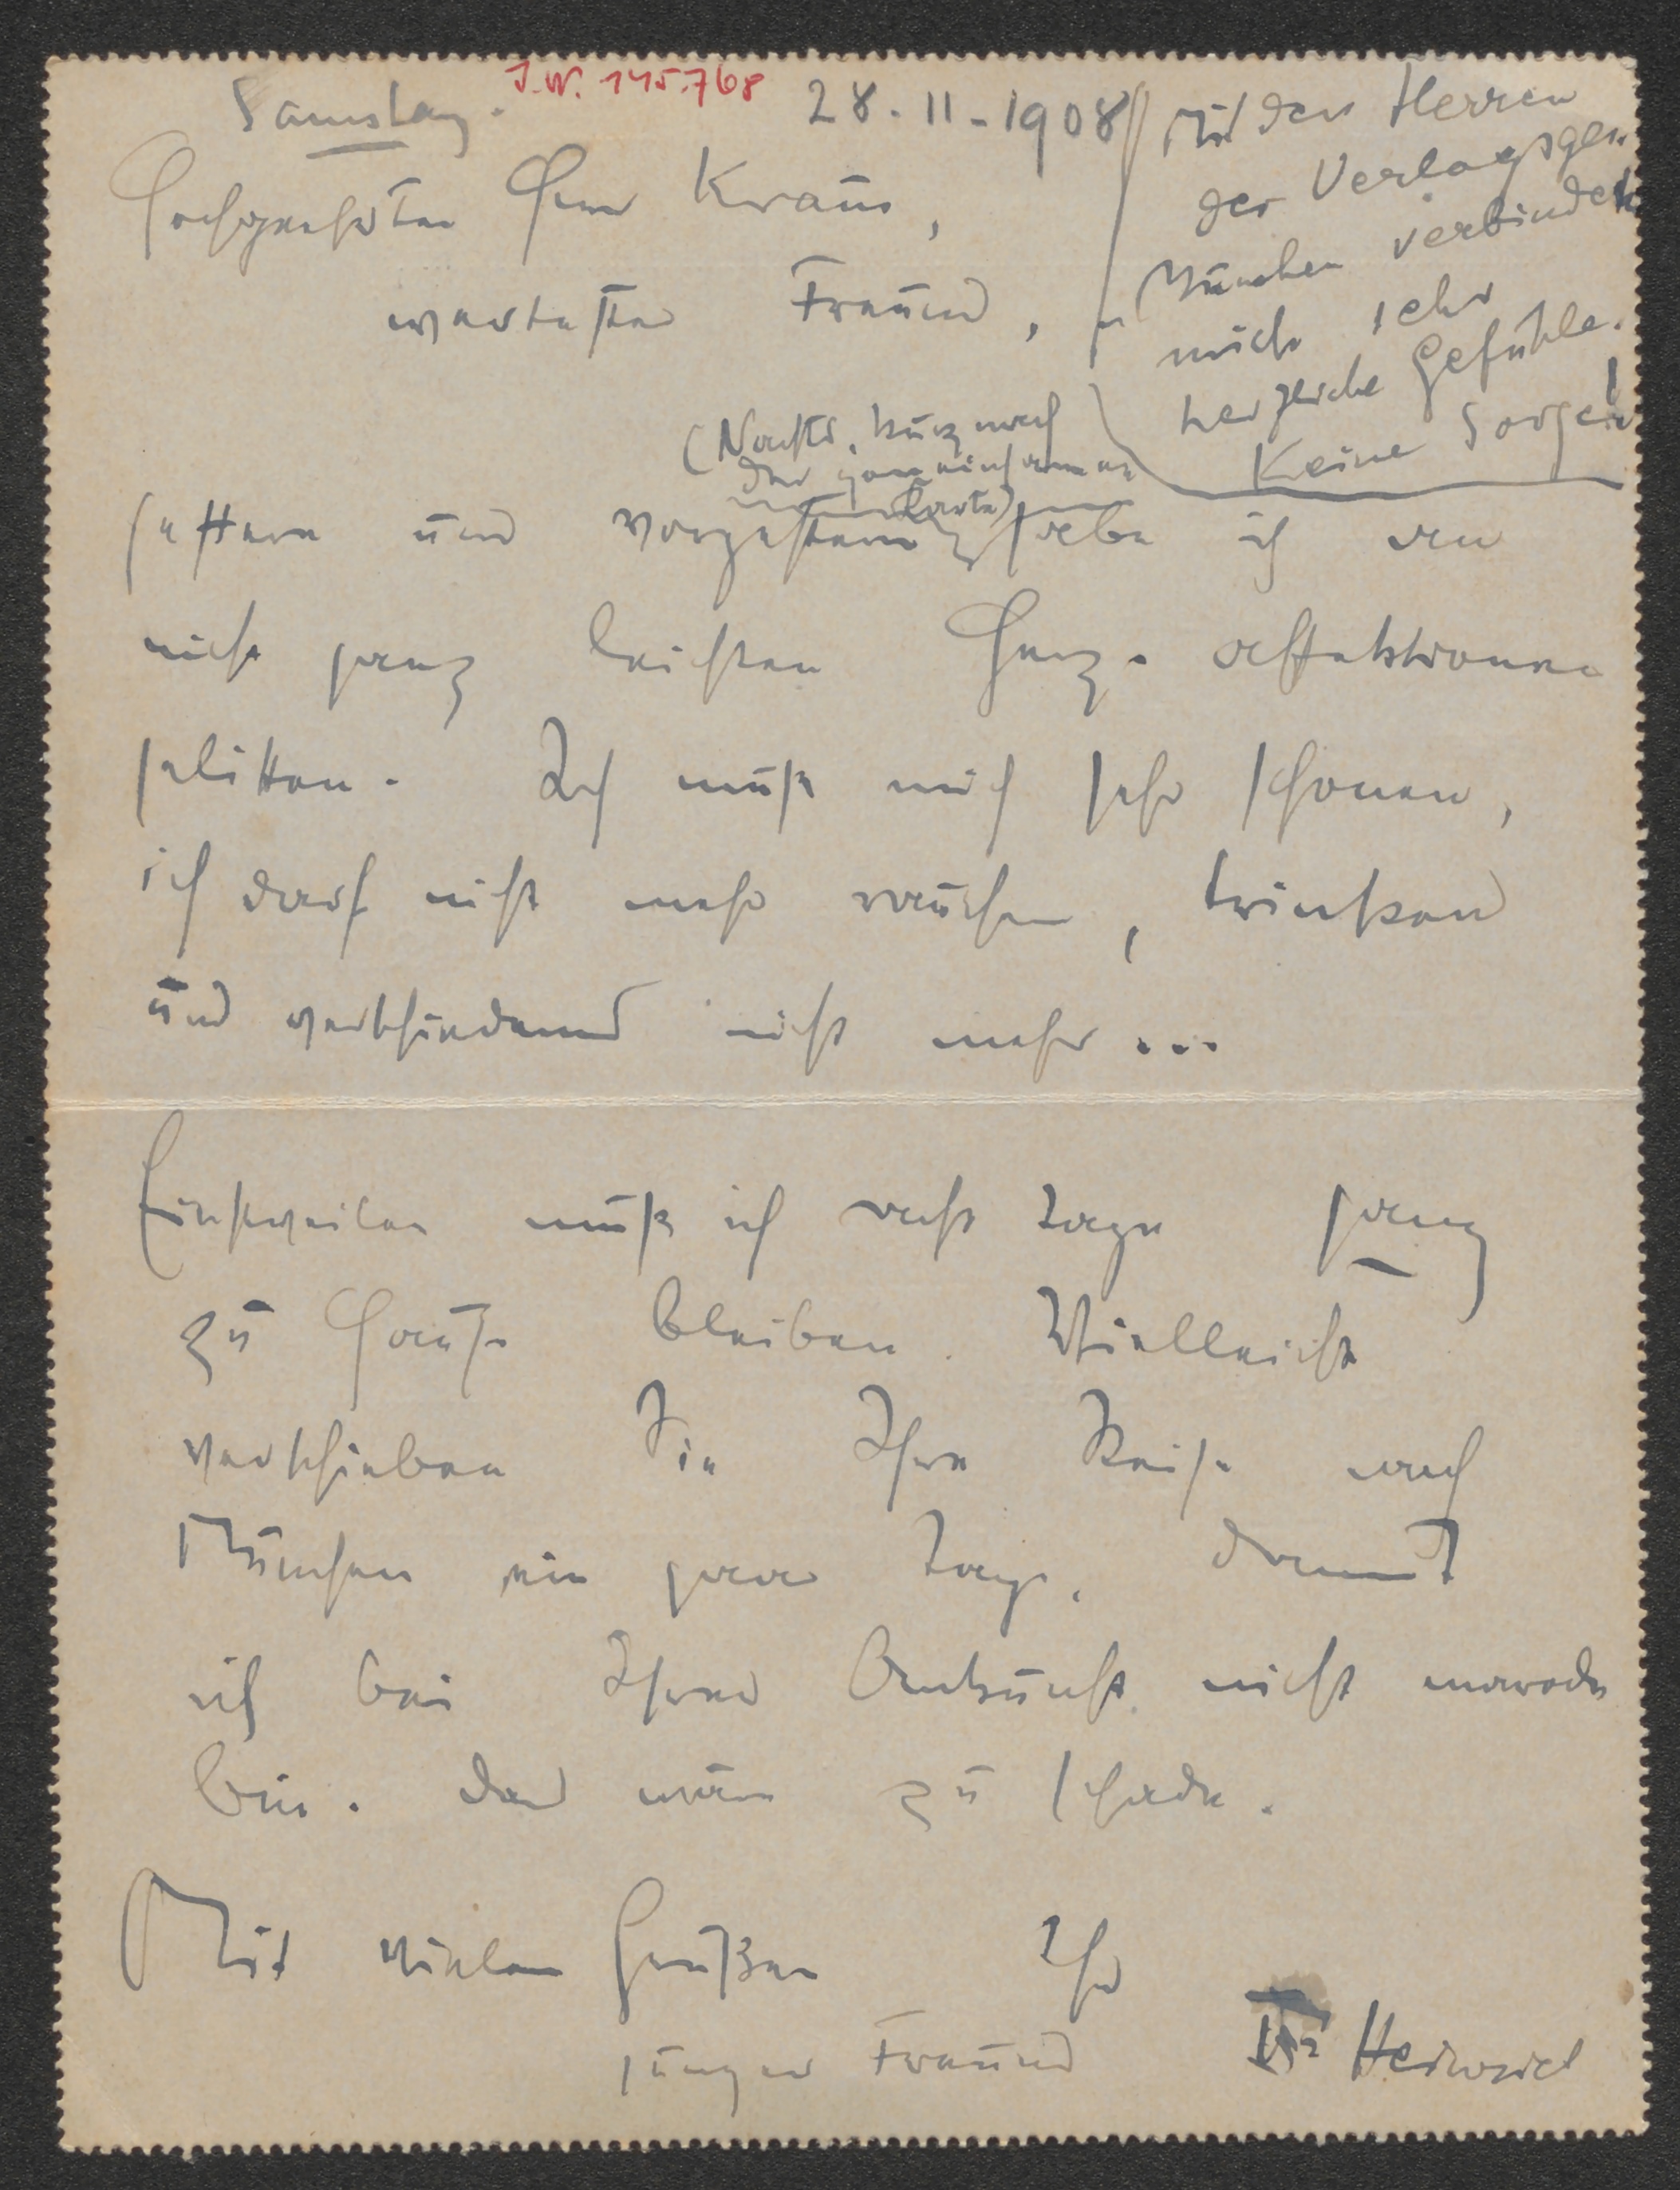 J.N. 145.768
Samstag. 28.11.1908
Hochgeehrter Herr Kraus,
wertester Freund,
Mit den Herren
der Verlagsges.
München verbinden
mich sehr
herzliche Gefühle.
Keine Sorge!
(Nachts, kurz nach
der gemeinsamen
Karte)
gestern und vorgestern habe ich an
nicht ganz leichten Herz-affektionen
gelitten. Ich muß mich sehr schonen,
ich darf nicht mehr rauchen, trinken
und verschiedenes nicht mehr...
Einstweilen muß ich acht Tage ganz
zu Hause bleiben. Vielleicht
verschieben Sie Ihre Reise nach
München ein paar Tage, damit
ich bei Ihrer Ankunft nicht marode
bin. Das wäre zu schade.
Mit vielen Grüßen Ihr
junger Freund